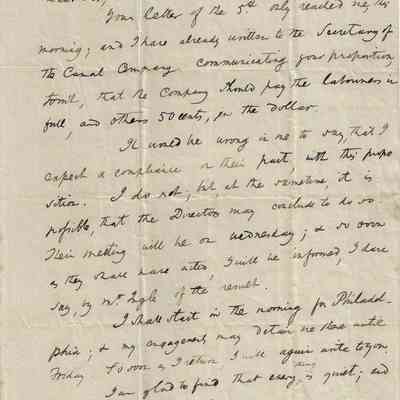 Your letter of the 5th only reached me this
morning; and I have already written to the Secretary of
the Canal Company communicating your proportion
to wit, that the Company should pay the labourers in
full, and others 50 cents, in the dollar.
It would be wrong in me to say, that I
expect a compliance on their part, with this propo
sition. I do not; but at the same time, it is
possible, that the Directors may conclude to do so
Their meeting will be on Wednesday; & so soon
as they shall have acted, I will be informed, I dare
say, by Mr. Ingle of the result.
I shall start in the morning for Philadel
phia; & my engagements may detain me there until
Friday So soon as I return I will again write to you.
I am glad to find that every thing is quiet; and